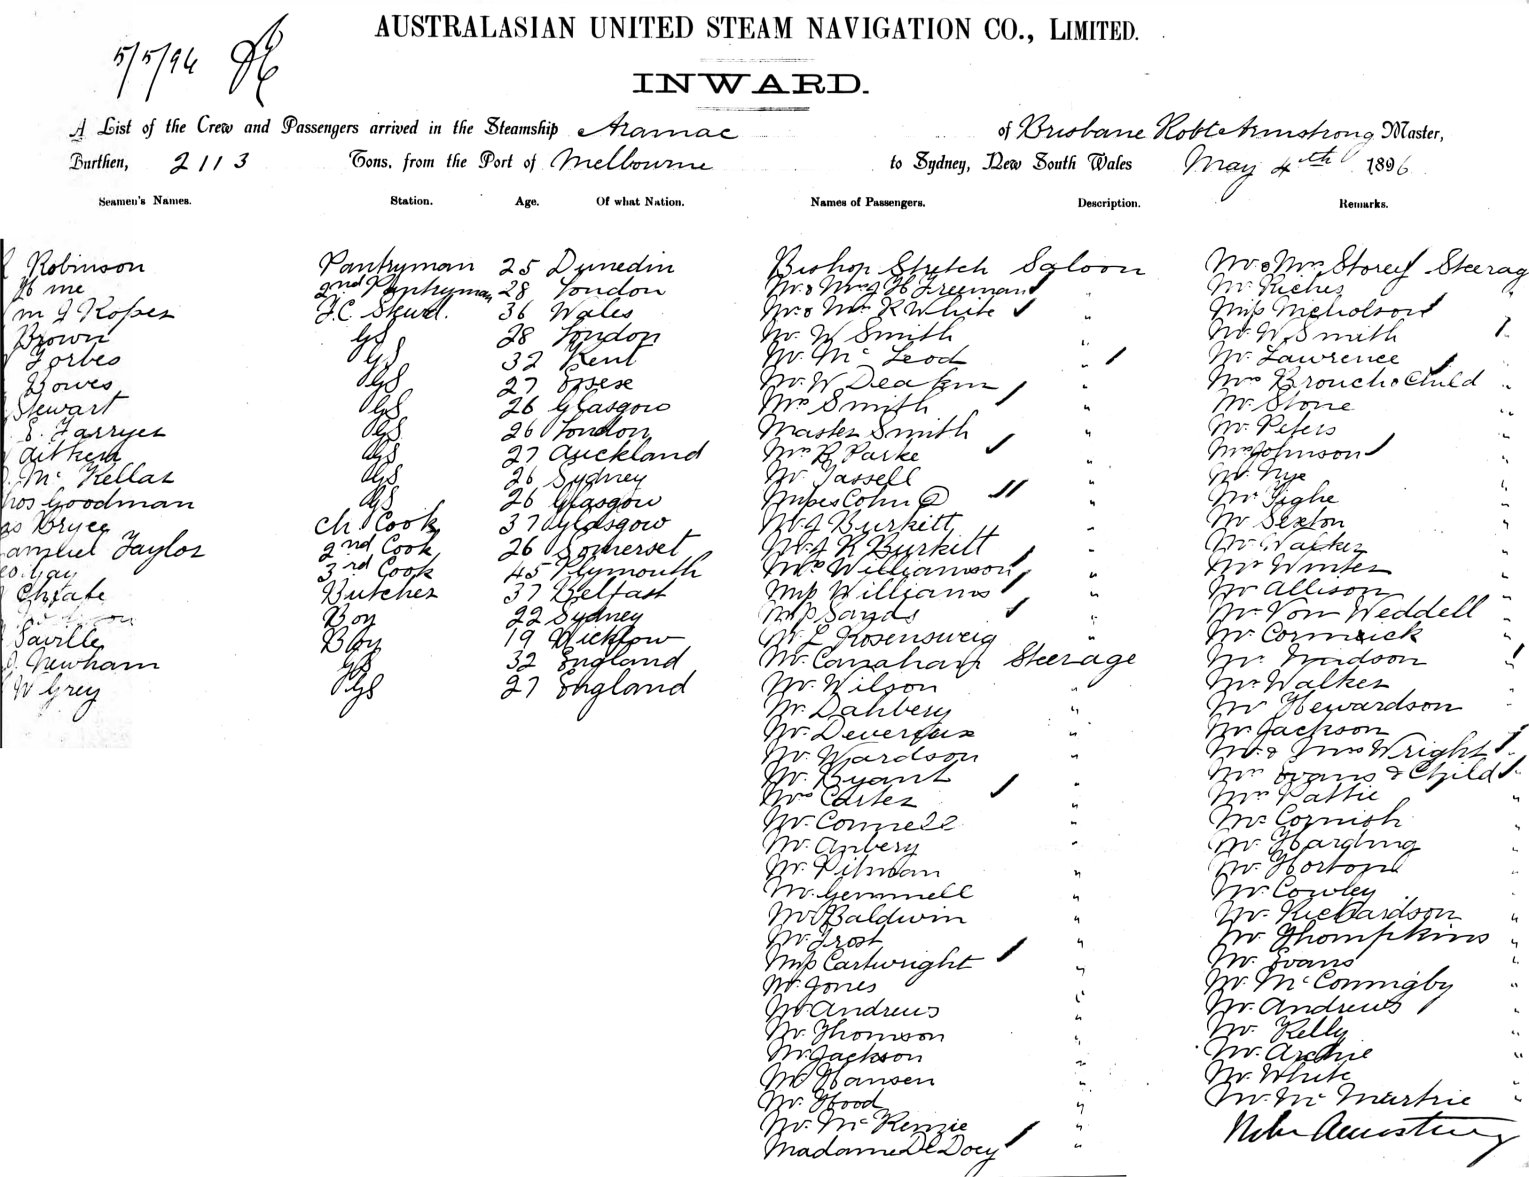 AUSTRALASIAN UNITED STEAM NAVIGATION CO., LIMITED.
5/5/96
INWARD.
A List of the Crew and Passengers arrived in the Steamship Aramac of Brisbane Robt Armstrong Master,
Burthen, 2113 Tons, from the Port of Melbourne to Sydney, New South Wales May 4th 1896
Seamen's Names. Station. Age. Of what Nation. Names of Passengers. Description. Remarks.
Robinson Pantryman 25 Dunedin Bishop Stretch Saloon Mr & Mrs Storey Steerag
2nd Pantryman 28 London Mr & Mrs J H Freeman " Mr Riches
m J Roper F.C. Stewd. 36 Wales Mr & Mrs R White " Miss Nicholson "
Brown GS 28 London Mr W Smith " Mr W Smith "
Forbes GS 32 Kent Mr McLeod " Mr Lawrence "
Bowes GS 27 Essex Mr W Deakin " Mrs Child "
Stewart GS 26 Glasgow Mrs Smith " Mr Stone "
E. Farryer GS 26 London Master Smith " Mr Peters "
Aitken GS 27 Auckland Mrs B Parke " Mrs Johnson "
McKellar GS 26 Sydney Mr Tassell " Mr Nye "
hos Goodman GS 26 Glasgow Misses Cohn 2 " Mr Tighe "
as Bryce Ch Cook 37 Glasgow Mr J Burkitt " Mr Sexton "
amuel Taylor 2nd Cook 26 Somerset Mr J R Burkitt " Mr Walker "
eo. Gay 3rd Cook 45 Plymouth Mrs Williamson " Mr Winter "
Butcher 37 Belfast Miss Williams " Mr Allison "
Boy 22 Sydney Miss Sands " Mr Von Weddell "
Saville Boy 19 Wicklow Mr L Rosensweig " Mr Cormick "
Newham GS 32 England Mr Canaham Steerage Mr Madson "
W Grey GS 27 England Mr Wilson " Mr Walker "
Mr Dahbery " Mr Hewardson "
Mr Devereux " Mr Jackson "
Mr Wardson " Mr & Mrs Wright "
Mr Byant " Mrs Evans & Child "
Mrs Carter " Mrs Pattie "
Mr Connell " Mr Cornish "
Mr Anbery " Mr Harding "
Mr Pitman " Mr Horton "
Mr Gemmell " Mr Cowley "
Mr Baldwin " Mr Richardson "
Mr Frost " Mr Thompkins "
Miss Cartwright " Mr Evans "
Mr Jones " Mr McConnigby "
Mr Andrews " Mr Andrews "
Mr Thomson " Mr Kelly "
Mr Jackson " Mr Archie "
Mr Hansen " Mr White "
Mr Hood " Mr McMartrie "
Mr McKenzie "
Madame De Docy " Armstrong